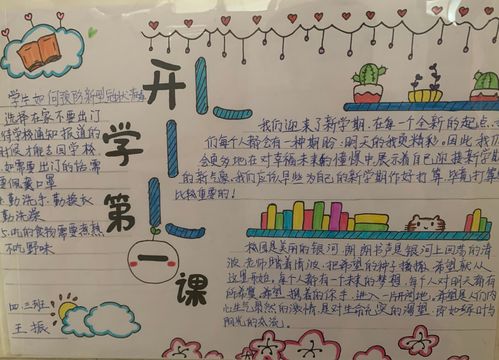 开学第一课
学生如何预防新型冠状病毒
选择在家不要出门
待学校通知报道的
时候才能去回学校
如需要出门的话需
要佩戴口罩
勤洗手勤换衣
勤洗澡
5.吃的食物需要煮熟
不吃野味
四.三班
王振
我们迎来了新学期,在每一个全新的起点,
们每个人都会有一种期盼:明天的我更精彩。因此,我们
会更多地在对幸福未来的憧憬中展示着自己迎接新学期
的新气象,我们应该早些为自己的新学期作好打算,毕竟打算
比较重要的!
校园是美丽的银河,朗朗书声是银河上回荡的清
波,老师踏着清波,把希望的种子播撒,希望就从
这里开始,每个人都有一个未来的梦想,每个人对明天都有
所希冀,希望
进入一片新
心生气昂然的激情,是对生命充实的渴望,
阳光的